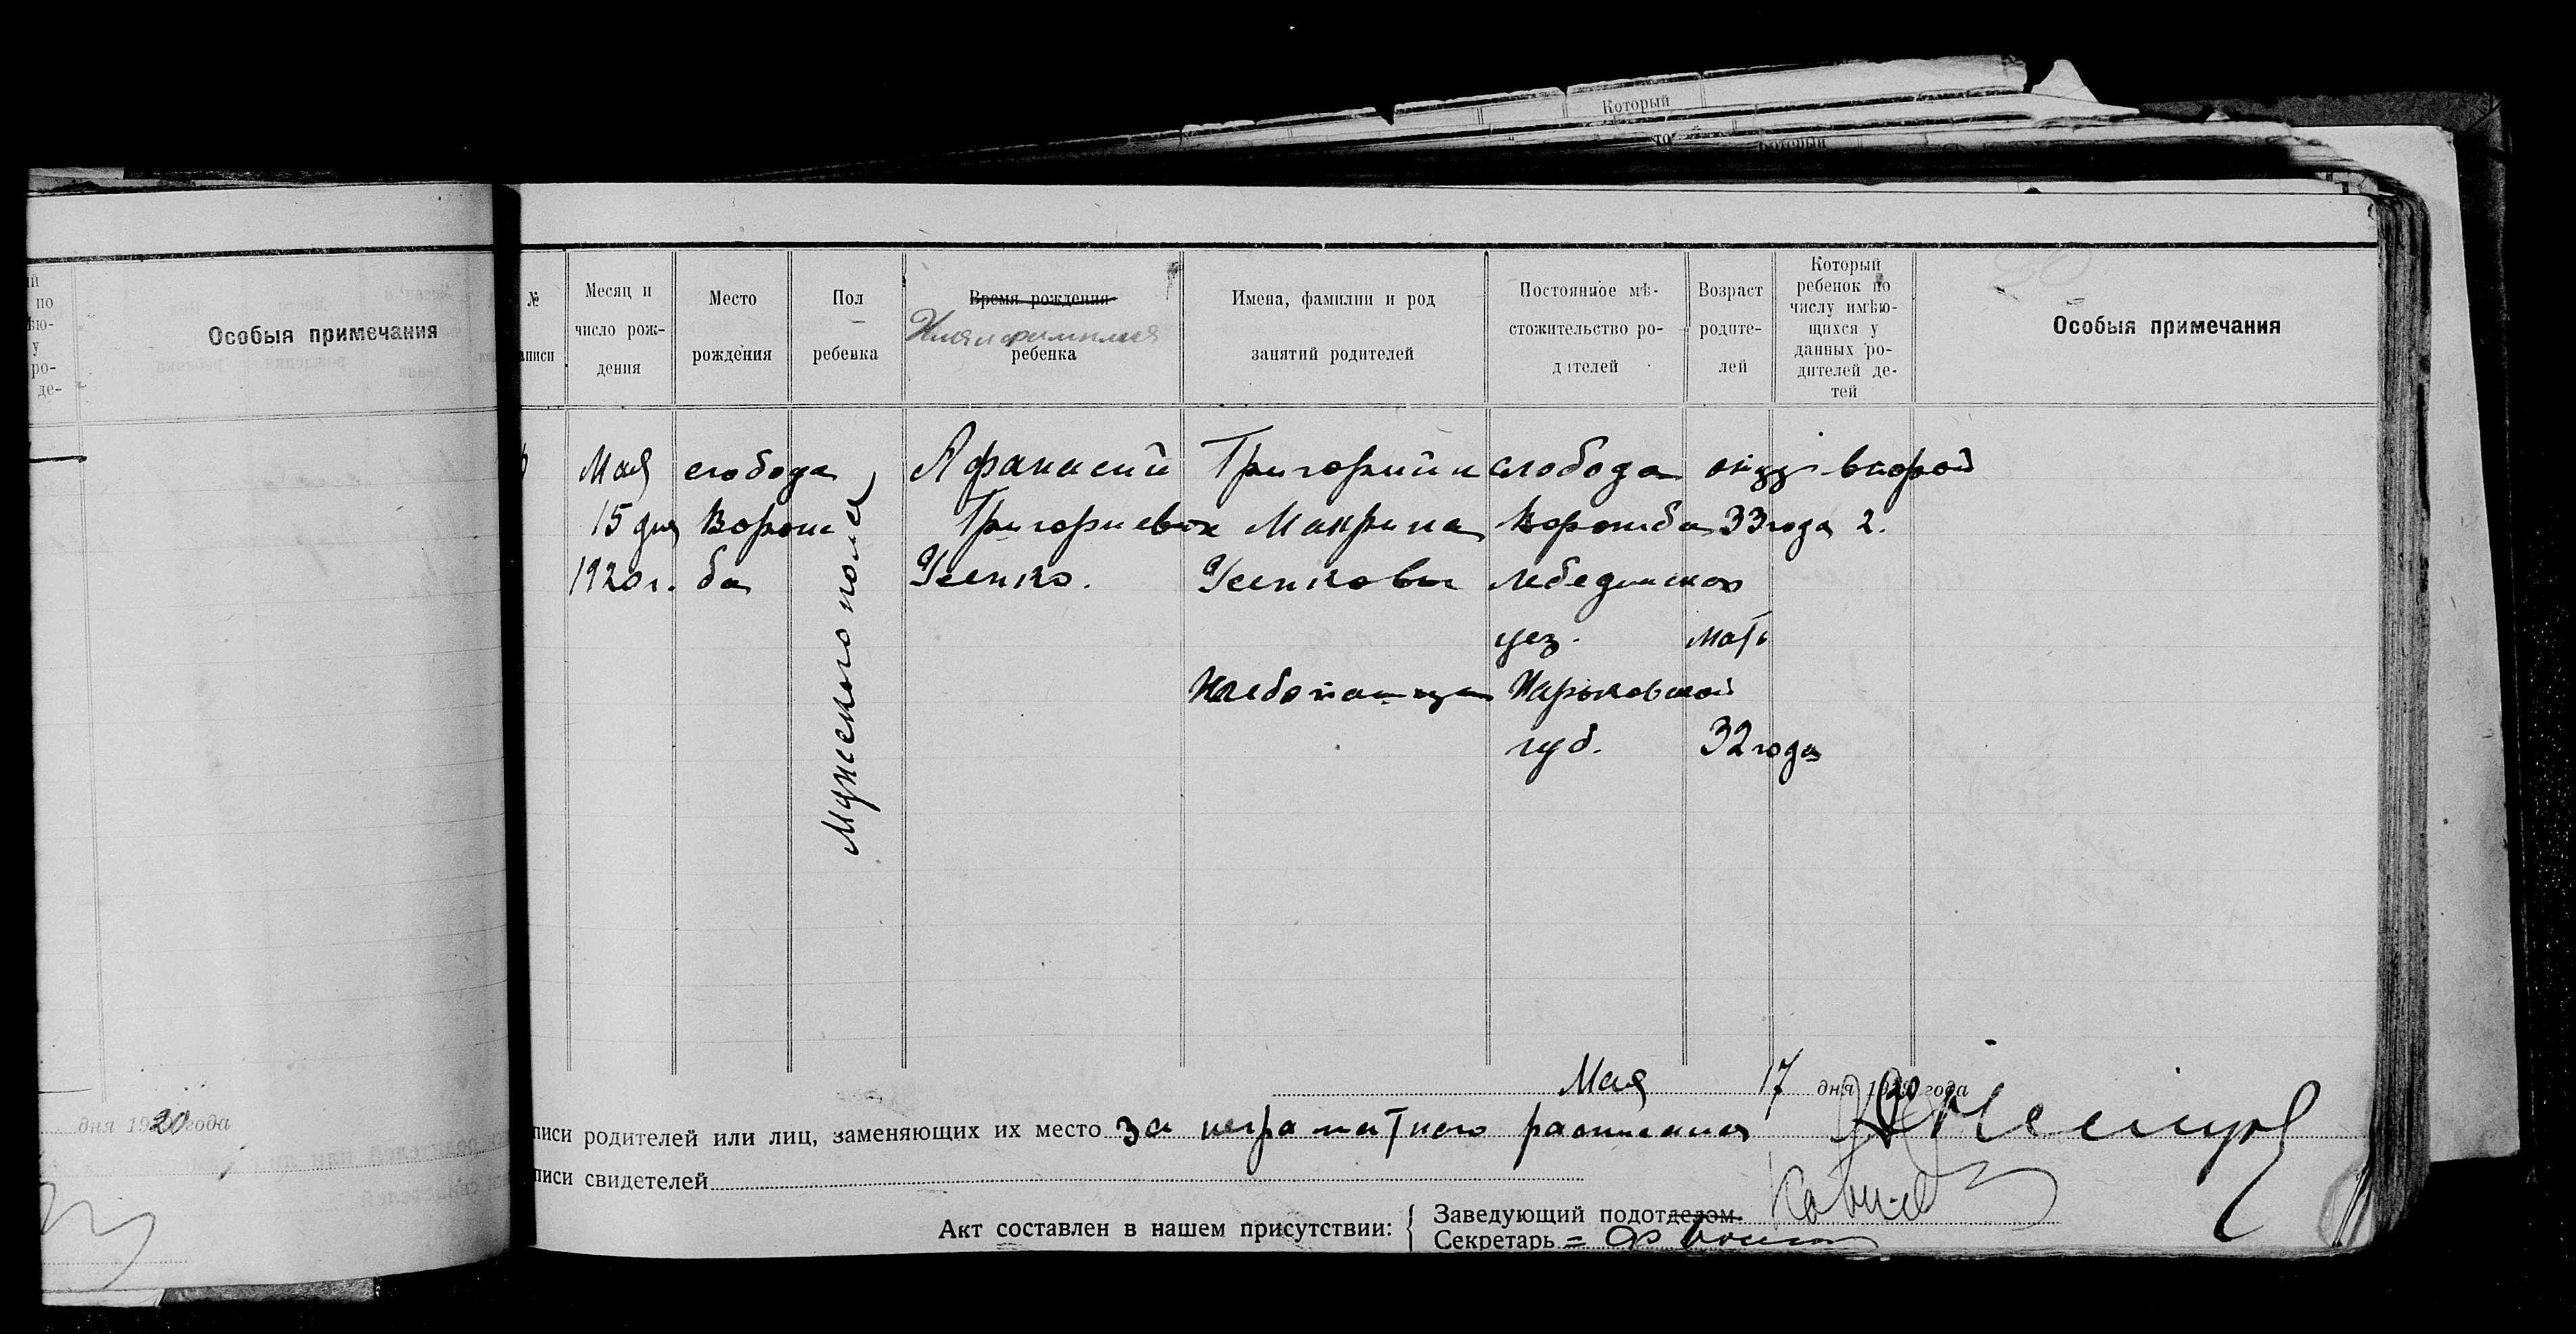 Который
то
который
й
по
ѣю-
у
ро-
де-
Особыя примечания
№
аписи
Месяц и
число рож-
дения
Место
рождения
Пол
ребенка
Время рождения
Имя и фамилия
ребенка
Имена, фамилии и род
занятий родителей
Постоянное мѣ-
стожительство ро-
дителей
Возраст
родите-
лей
Который
ребенок по
числу имѣю-
щихся у
данных ро-
дителей де-
тей
Особыя примечания
Мая
15 дня
1920 г.
слобода
Ворож
ба
Мужеского пола
Афанасий
Григориевич
Усенко.
Григорий и
Макрина
Усенковы
Хлебопашцы
слобода
Ворожба
Лебединского
уез.
Харьковской
губ.
отец
33 года
мать
32 года
второй
2.
Мая 17 дня 1920 года
дня 1920 года
писи родителей или лиц, заменяющих их место за неграмотного расписался
писи свидетелей
Акт составлен в нашем присутствии:
Заведующий подотделом
Секретарь =